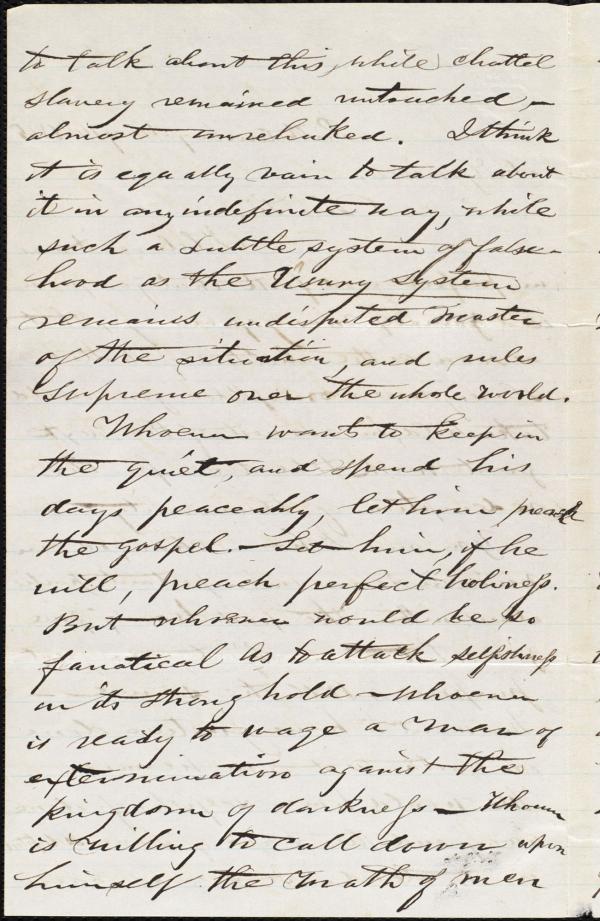 to talk about this, while chattel
slavery remained untouched –
almost unrebuked. I think
it is equally vain to talk about
it in any indefinite way, while
such a subtle system of false-
hood as the Usury system
remains undisputed master
of the situation, and rules
supreme over the whole world.
Whoever wants to keep in
the quiet, and spend his
days peaceably, let him preach
the gospel. – Let him, if he
will, preach perfect holiness.
But whoever would be so
fanatical as to attack selfishness
in its strong hold – whoever
is ready to wage a war of
extermination against the
kingdom of darkness – Whoever
is willing to call down upon
himself the wrath of men